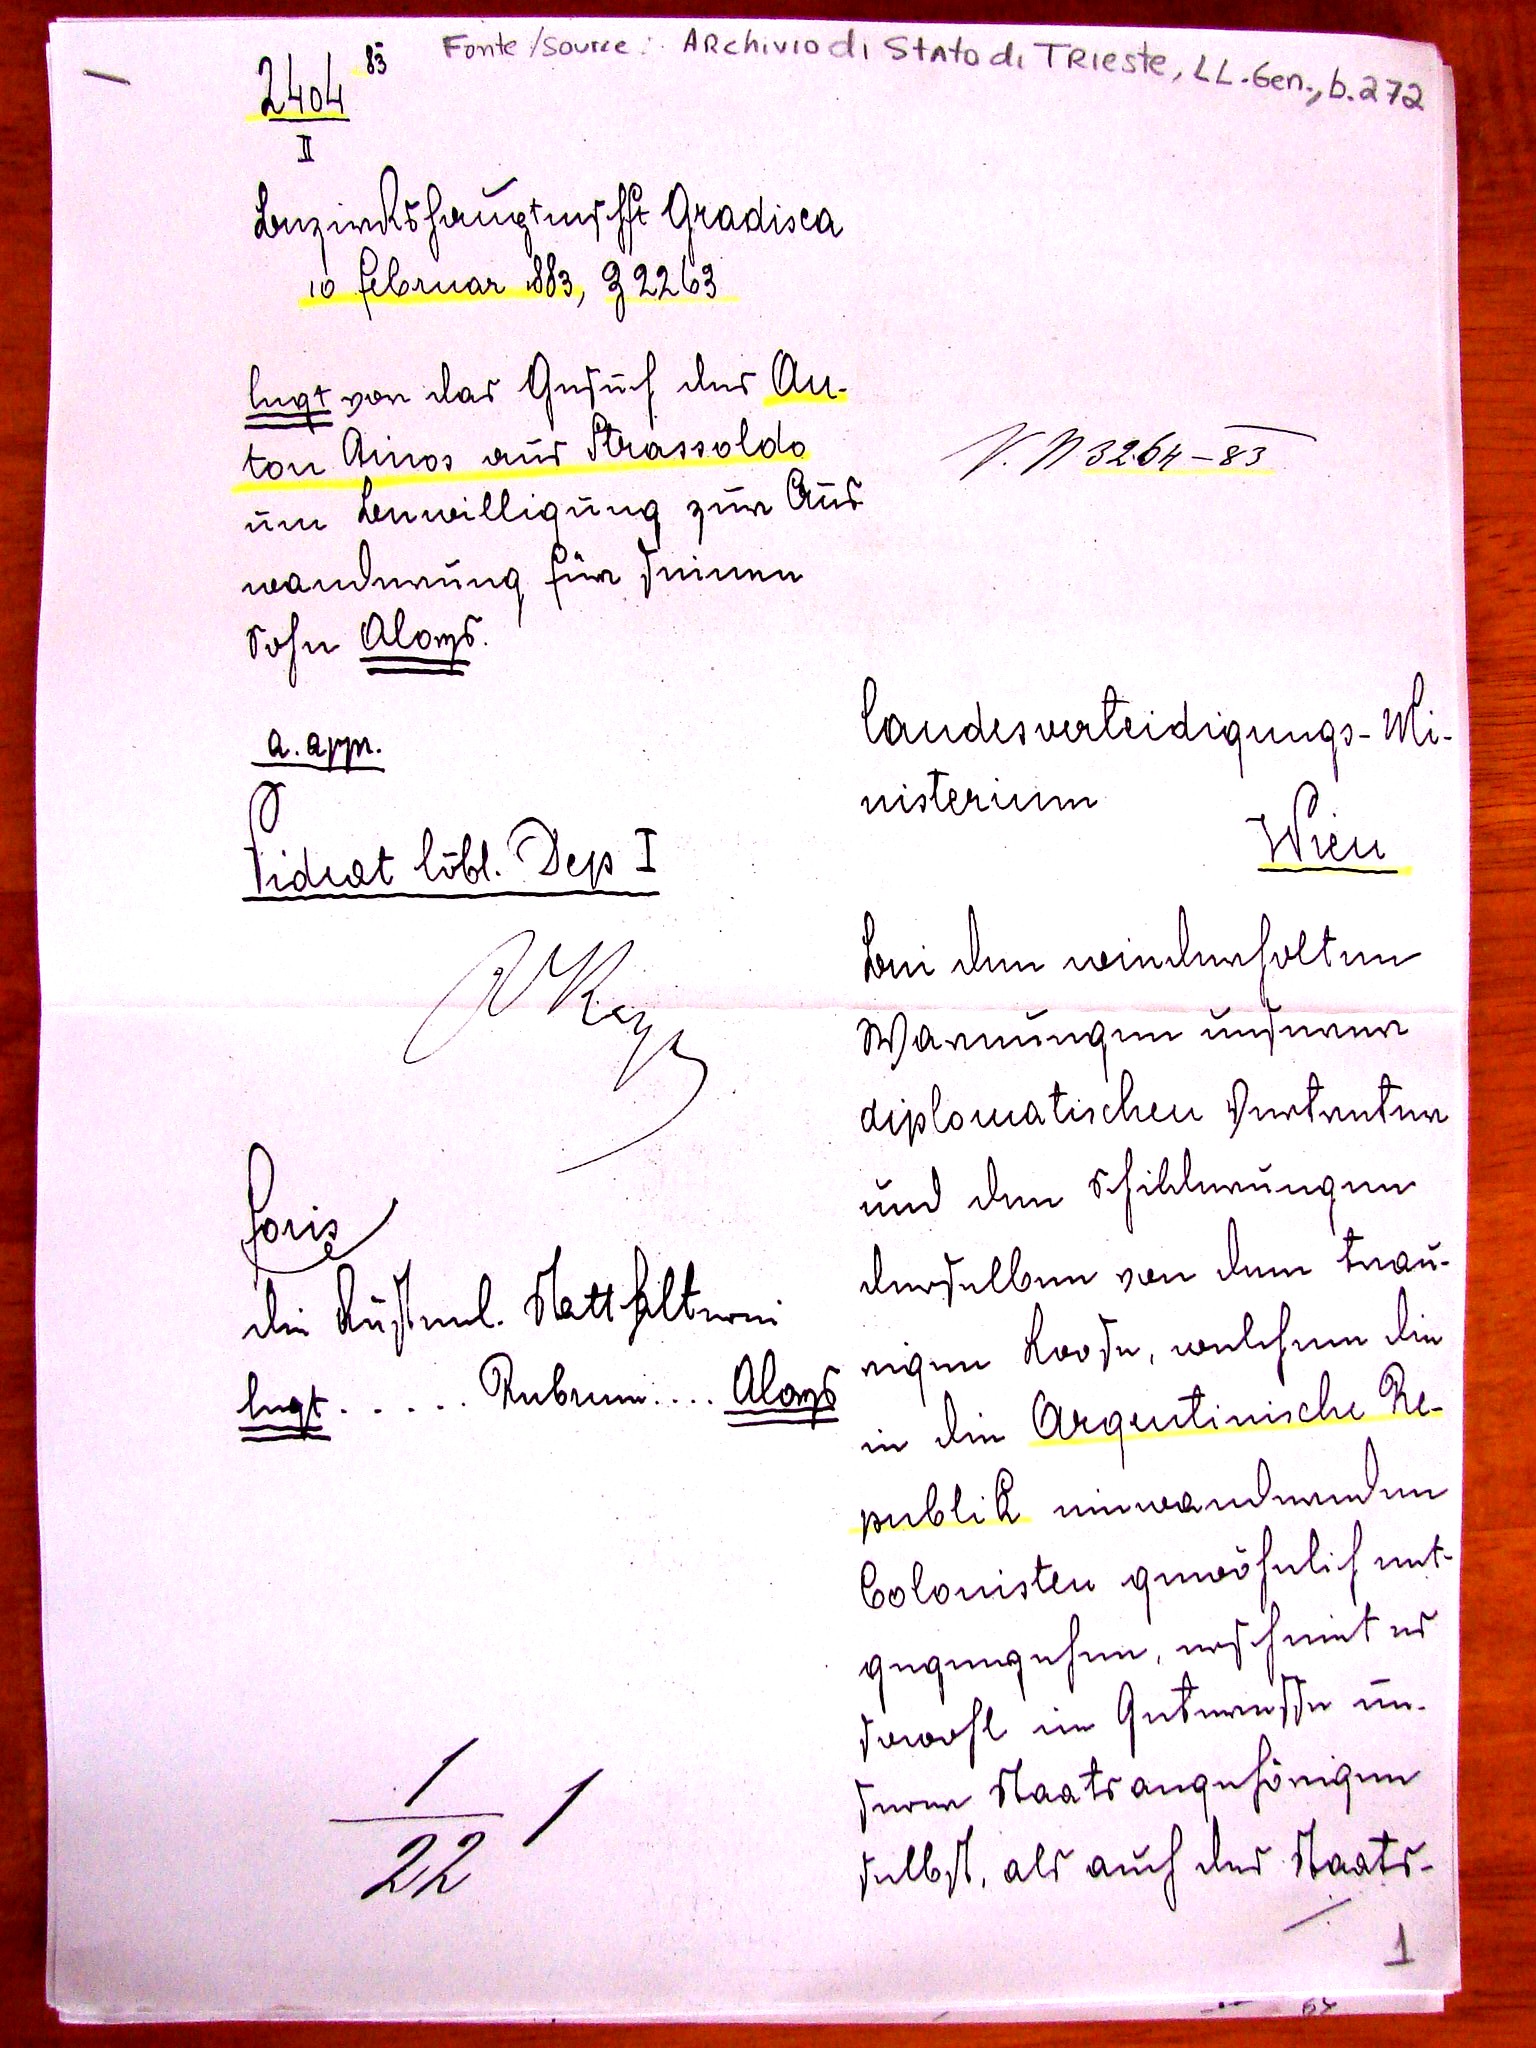 Fonte/Source: Archivio di Stato di Trieste, LL.Gen., b.272
2404 83
II
Bezirkshauptmschft Gradisca
10 februar 883, Z 2263
legt vor das Gesuch des An-
ton Ainos aus Strassoldo
um Bewilligung zur Aus
wanderung für seinen
Sohn Aloys.
V. N 3264-83
a. app.
Videat löbl. Dep I
Foris
die Küstenl. Statthalterei
legt ..... Rubrum .... Aloys
1
22 1
Landesverteidigungs-Mi-
nisterium
Wien
Bei den wiederholten
Warnungen unserer
diplomatischen Vertreter
und den Schilderungen
derselben von dem trau-
rigen Loose, welchem die
in die Argentinische Re-
publik einwandernden
Colonisten gewöhnlich ent-
gegengehen, erscheint es
sowohl im Interesse un-
serer Staatsangehörigen
selbst, als auch des Staats-
1